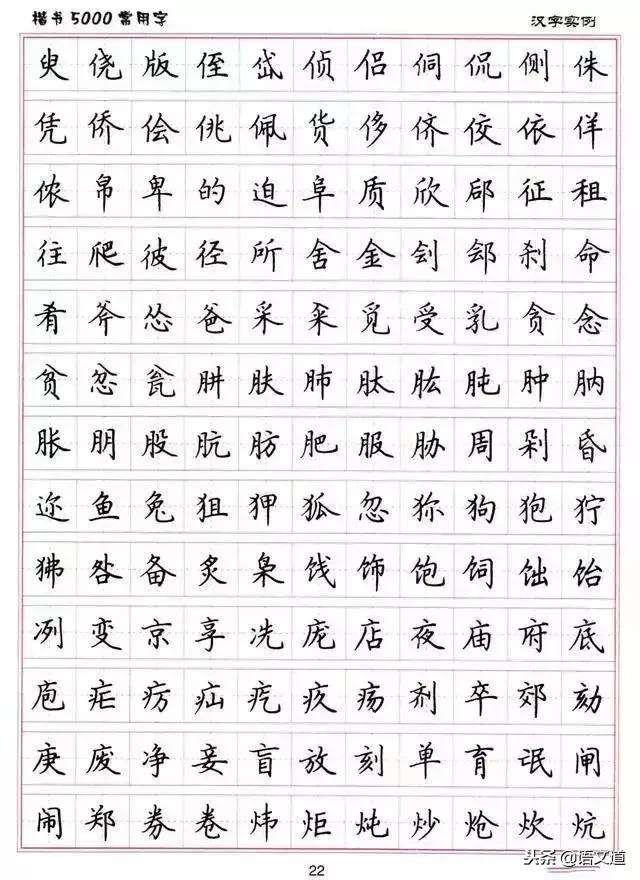 楷书5000常用字
汉字实例
臾侥版侄岱侦侣侗侃侧侏
凭侨侩佻佩货侈侪佼依佯
侬帛卑的迫阜质欣郈征租
往爬彼径所舍金刽郐刹命
肴斧怂爸采籴觅受乳贪念
贫忿瓮肼肤肺肽肱肫肿肭
胀朋股肮肪肥服胁周剁昏
迩鱼兔狙狎狐忽狝狗狍狞
狒咎备炙枭饯饰饱饲饳饴
冽变京享冼庞店夜庙府底
庖疟疠疝疙疚疡剂卒郊劾
庚废净妾盲放刻单育氓闸
闹郑券卷炜炬炖炒炝炊炕
22
头条@语文道